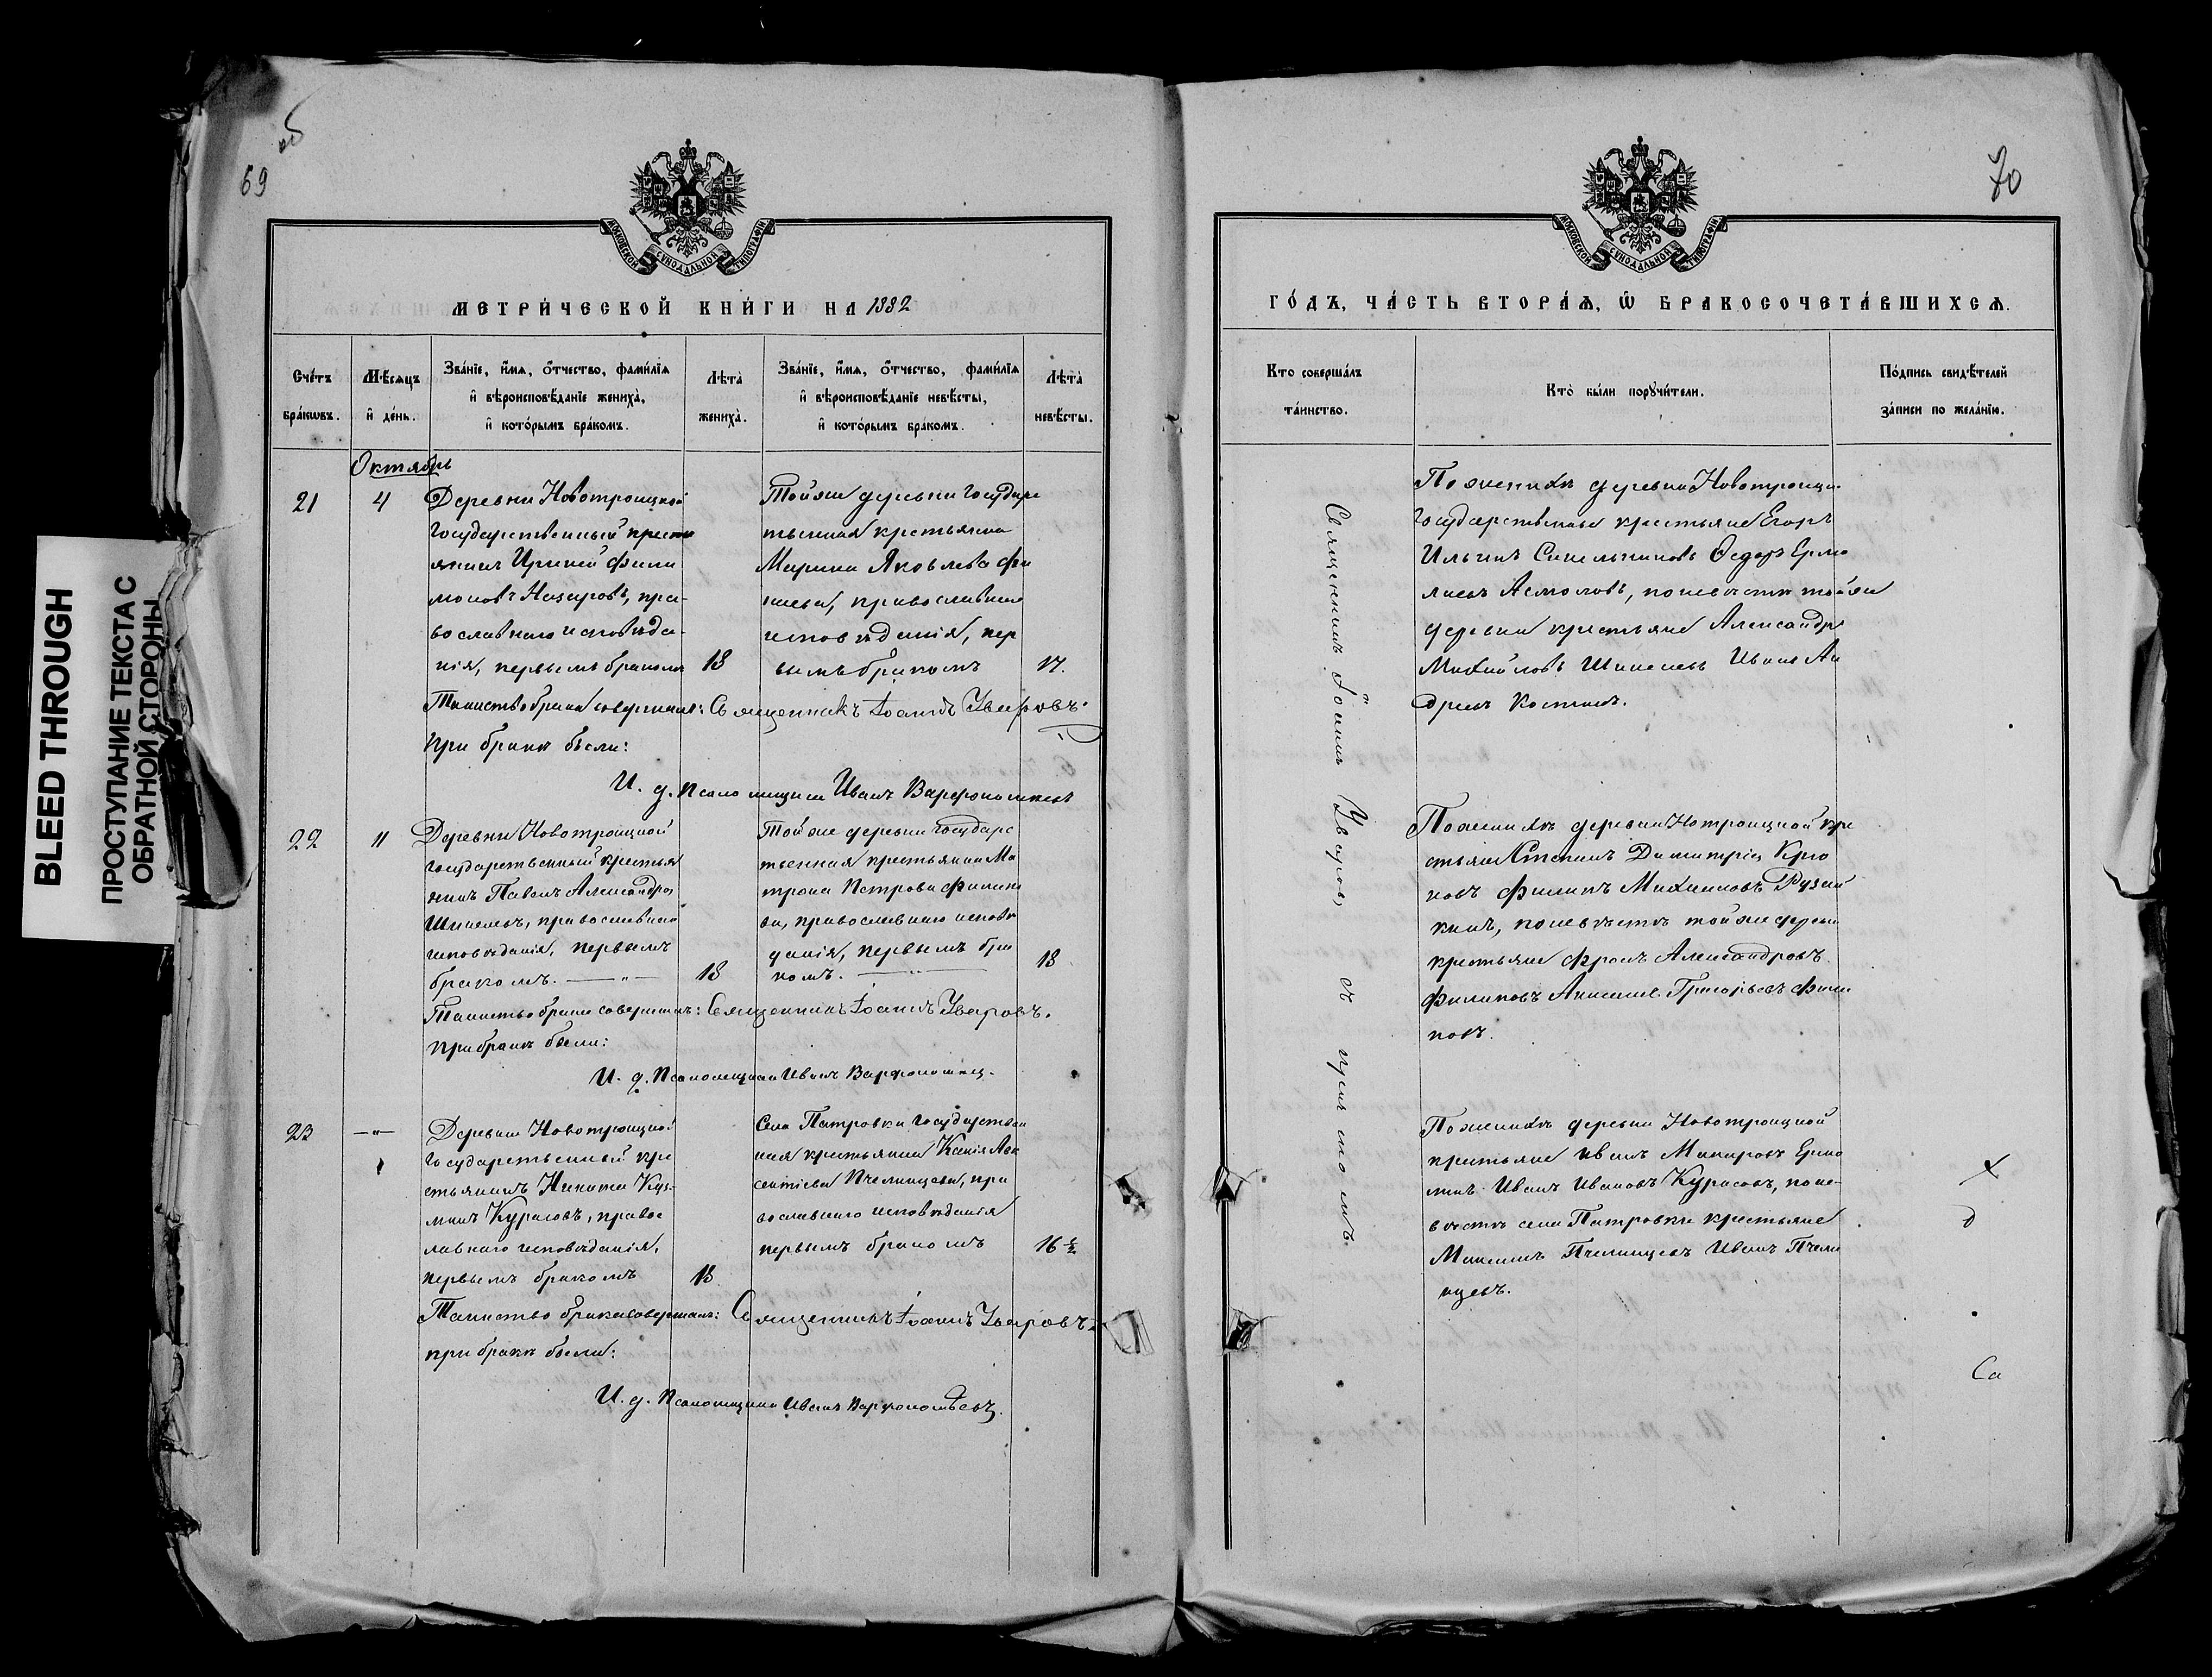 BLEED THROUGH
ПРОСТУПАНИЕ ТЕКСТА С
ОБРАТНОЙ СТОРОНЫ
69 об
МОСКОВСКОЙ СѴНОДАЛЬНОЙ ТИПОГРАФІИ
МЕТРИ́ЧЕСКОЙ КНИ́ГИ НА 1882
Сче́тъ бра́кωвъ.
Мѣ́сяцъ и҆ де́нь.
Зва́нїе, и҆́мѧ, ѻ҆́тчество, фами́лїѧ
и҆ вѣроисповѣ́данїе жениха̀,
и҆ кото́рымъ бра́комъ.
Лѣта̀ жениха̀.
Зва́нїе, и҆́мѧ, ѻ҆́тчество, фами́лїѧ
и҆ вѣроисповѣ́данїе невѣ́сты,
и҆ кото́рымъ бра́комъ.
Лѣта̀ невѣ́сты.
Октябрь
21
4
Деревни Новотроицкой
государственный кресть
янинъ Ириней Фили
моновъ Назаровъ, пра-
вославнаго исповѣда-
нія, первымъ бракомъ
18
Тойже деревни государс
твенная крестьянка
Марина Яковлева Фи
, православнаго
исповѣданія, пер
вымъ бракомъ
17.
Таинство брака совершалъ: Священникъ Іоаннъ Уваровъ.
При бракѣ были:
И. д. Псаломщика Иванъ Варфоломеевъ
22
11
Деревни Новотроицкой
государственный крестья
нинъ Павелъ Александровъ
, православнаго
исповѣданія, первымъ
бракомъ. — „ —
18
Тойже деревни государс
твенная крестьянка Ма
трона Петрова Филипо
ва, православнаго исповѣ
данія, первымъ бра
комъ. — „ —
18
Таинство брака совершалъ: Священникъ Іоаннъ Уваровъ.
При бракѣ были:
И. д. Псаломщика Иванъ Варфоломеевъ.
23
— „ —
Деревни Новотроицкой
государственный кре
стьянинъ Никита Кузь-
минъ Курасовъ, правос
лавнаго исповѣданія,
первымъ бракомъ
18
Села Патровки государствен
ная крестьянка Ксенія Авк
сентіева Пчелинцева, пра
вославнаго исповѣданія
первымъ бракомъ
16 ½
Таинство брака совершалъ: Священникъ Іоаннъ Уваровъ.
при бракѣ были:
И. д. Псаломщика Иванъ Варфоломѣевъ.
70
МОСКОВСКОЙ СѴНОДАЛЬНОЙ ТИПОГРАФІИ
ГО́ДЪ, ЧА́СТЬ ВТОРА́Ѧ, Ѽ БРАКОСОЧЕТА́ВШИХСѦ.
Кто соверша́лъ та́инство.
Кто̀ бы́ли порꙋчи́тели.
По́дпись свидѣ́телей за́писи по жела́нїю.
Священникъ Іоаннъ Уваровъ съ псаломщ
По женихѣ деревни Новотроицкой
государственные крестьяне Егоръ
Ильинъ Синельниковъ Ѳедоръ Ермо
лаевъ Асмоловъ, по невѣстѣ тойже
деревни крестьяне Александръ
Михайловъ Иванъ Ан
дреевъ Костинъ.
По женихѣ деревни Нотроицкой кре
стьяне Степанъ Димитріевъ Крю
ковъ Филипъ Михайловъ Рузай
кинъ, по невѣстѣ тойже деревни
крестьяне Фролъ Александровъ
Филиповъ Анисимъ Григорьевъ Фили
повъ.
По женихѣ деревни Новотроицкой
крестьяне Иванъ Макаровъ Ермо
Иванъ Ивановъ Курасовъ, по не-
вѣстѣ села Патровки крестьяне
Максимъ Пчелинцевъ Иванъ Пчели
нцевъ.